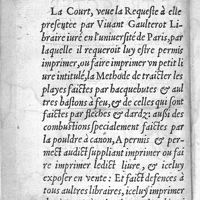 La Court, veue la Requeste à elle
presentee par Viuant Gaulterot Li-
braire iuré en l'uniuersité de Paris, par
laquelle il requeroit luy estre permis
imprimer, ou faire imprimer vn petit li
ure intitulé, la Methode de traicter les
playes faictes par hacquebutes & au
tres bastons à feu, & de celles qui sont
faictes par fleches & dardz: aussi des
combustions specialement faictes par
la pouldre à canon, A permis & per-
mect audict suppliant imprimer ou fai
re imprimer ledict liure, & iceluy
exposer en vente: Et faict defences à
tous aultres libraires, iceluy imprimer